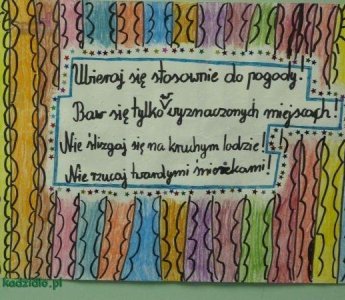 Ubieraj się stosownie do pogody!
Baw się tylko w wyznaczonych miejscach!
Nie ślizgaj się na kruchym lodzie!
Nie rzucaj twardymi śnieżkami!
kadzidlo.pl